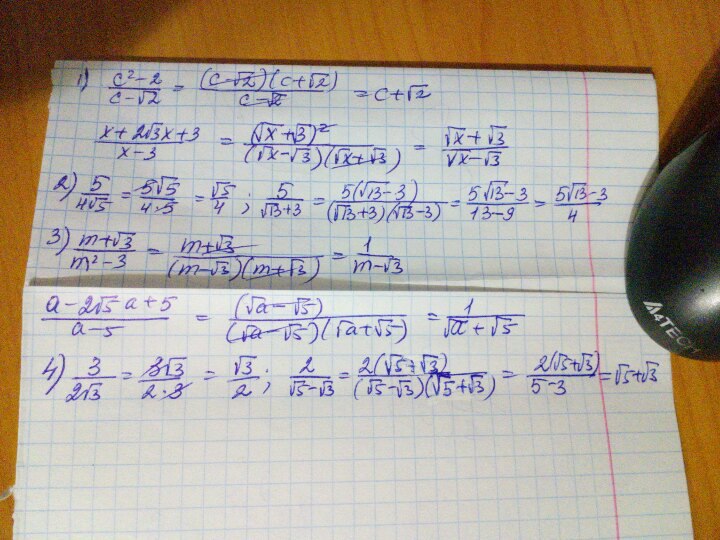 1) (c²-2)/(c-√2) = ((c-√2)(c+√2))/(c-√2) = c+√2
(x+2√3x+3)/(x-3) = (√x+√3)²/((√x-√3)(√x+√3)) = (√x+√3)/(√x-√3)
2) 5/(4√5) = 5√5/(4·5) = √5/4 ; 5/(√13+3) = 5(√13-3)/((√13+3)(√13-3)) = (5√13-3)/(13-9) = (5√13-3)/4
3) (m+√3)/(m²-3) = (m+√3)/((m-√3)(m+√3)) = 1/(m-√3)
(a-2√5 a+5)/(a-5) = (√a-√5)/((√a-√5)(√a+√5)) = 1/(√a+√5)
4) 3/(2√3) = 3√3/(2·3) = √3/2 ; 2/(√5-√3) = 2(√5+√3)/((√5-√3)(√5+√3)) = 2(√5+√3)/(5-3) = √5+√3
A4TECH